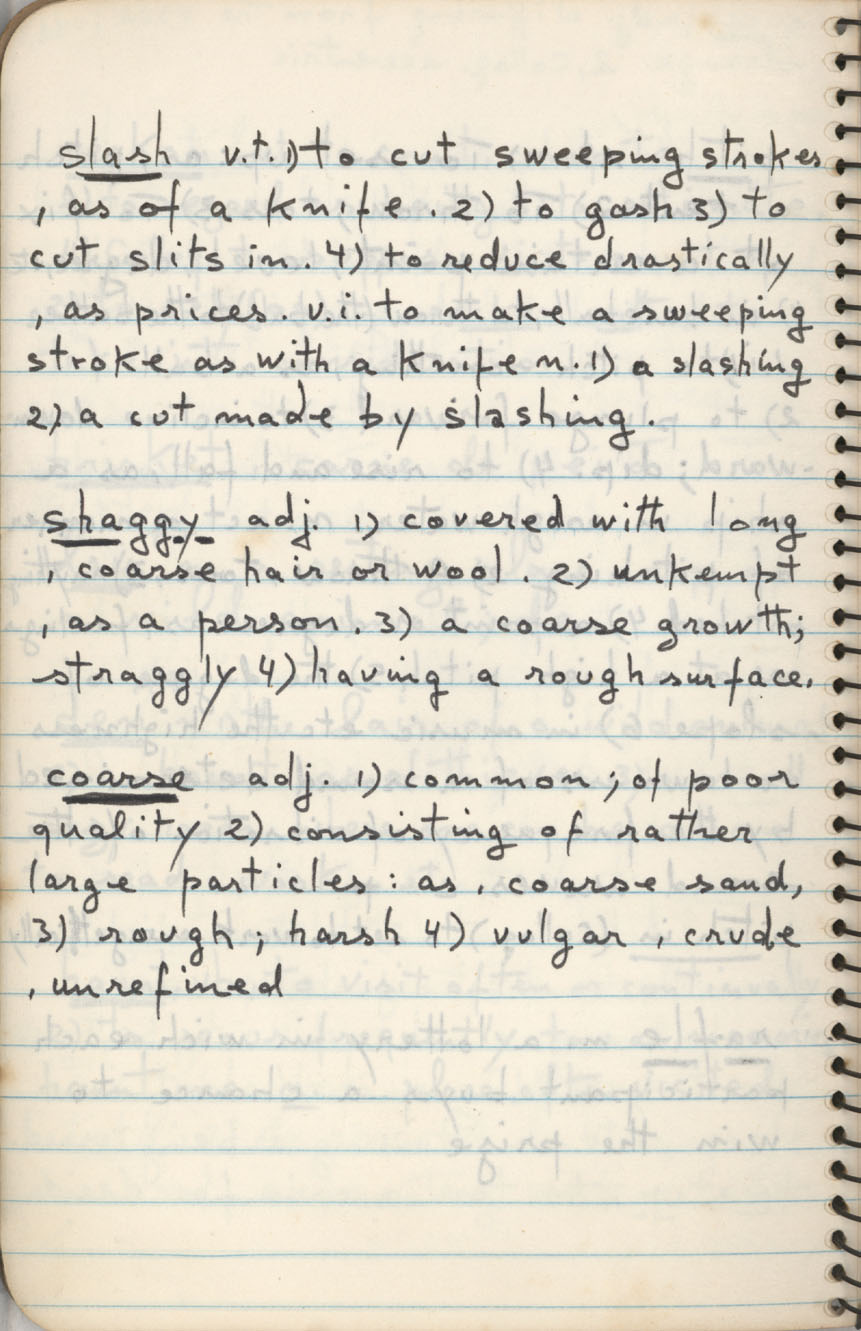 slash v.t. 1) to cut sweeping strokes
, as of a knife. 2) to gash 3) to
cut slits in. 4) to reduce drastically
, as prices. v.i. to make a sweeping
stroke as with a knife n. 1) a slashing
2) a cut made by slashing.
shaggy adj. 1) covered with long
, coarse hair or wool. 2) unkempt
, as a person. 3) a coarse growth;
straggly 4) having a rough surface.
coarse adj. 1) common; of poor
quality 2) consisting of rather
large particles: as, coarse sand,
3) rough; harsh 4) vulgar, crude
, unrefined